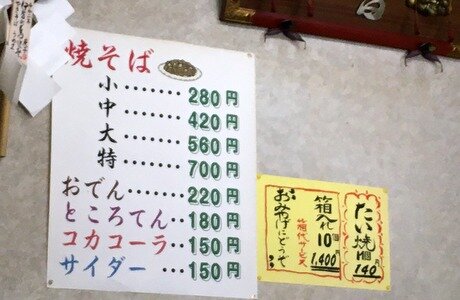 焼そば
小・・・・・・・280円
中・・・・・・420円
大・・・・・・560円
特・・・・・・700円
おでん・・・・・220円
ところてん・・180円
コカコーラ・・150円
サイダー・・・150円
たい焼
1個
140
箱入れ
10個
1,400
箱代サービス
おみやげにどうぞ